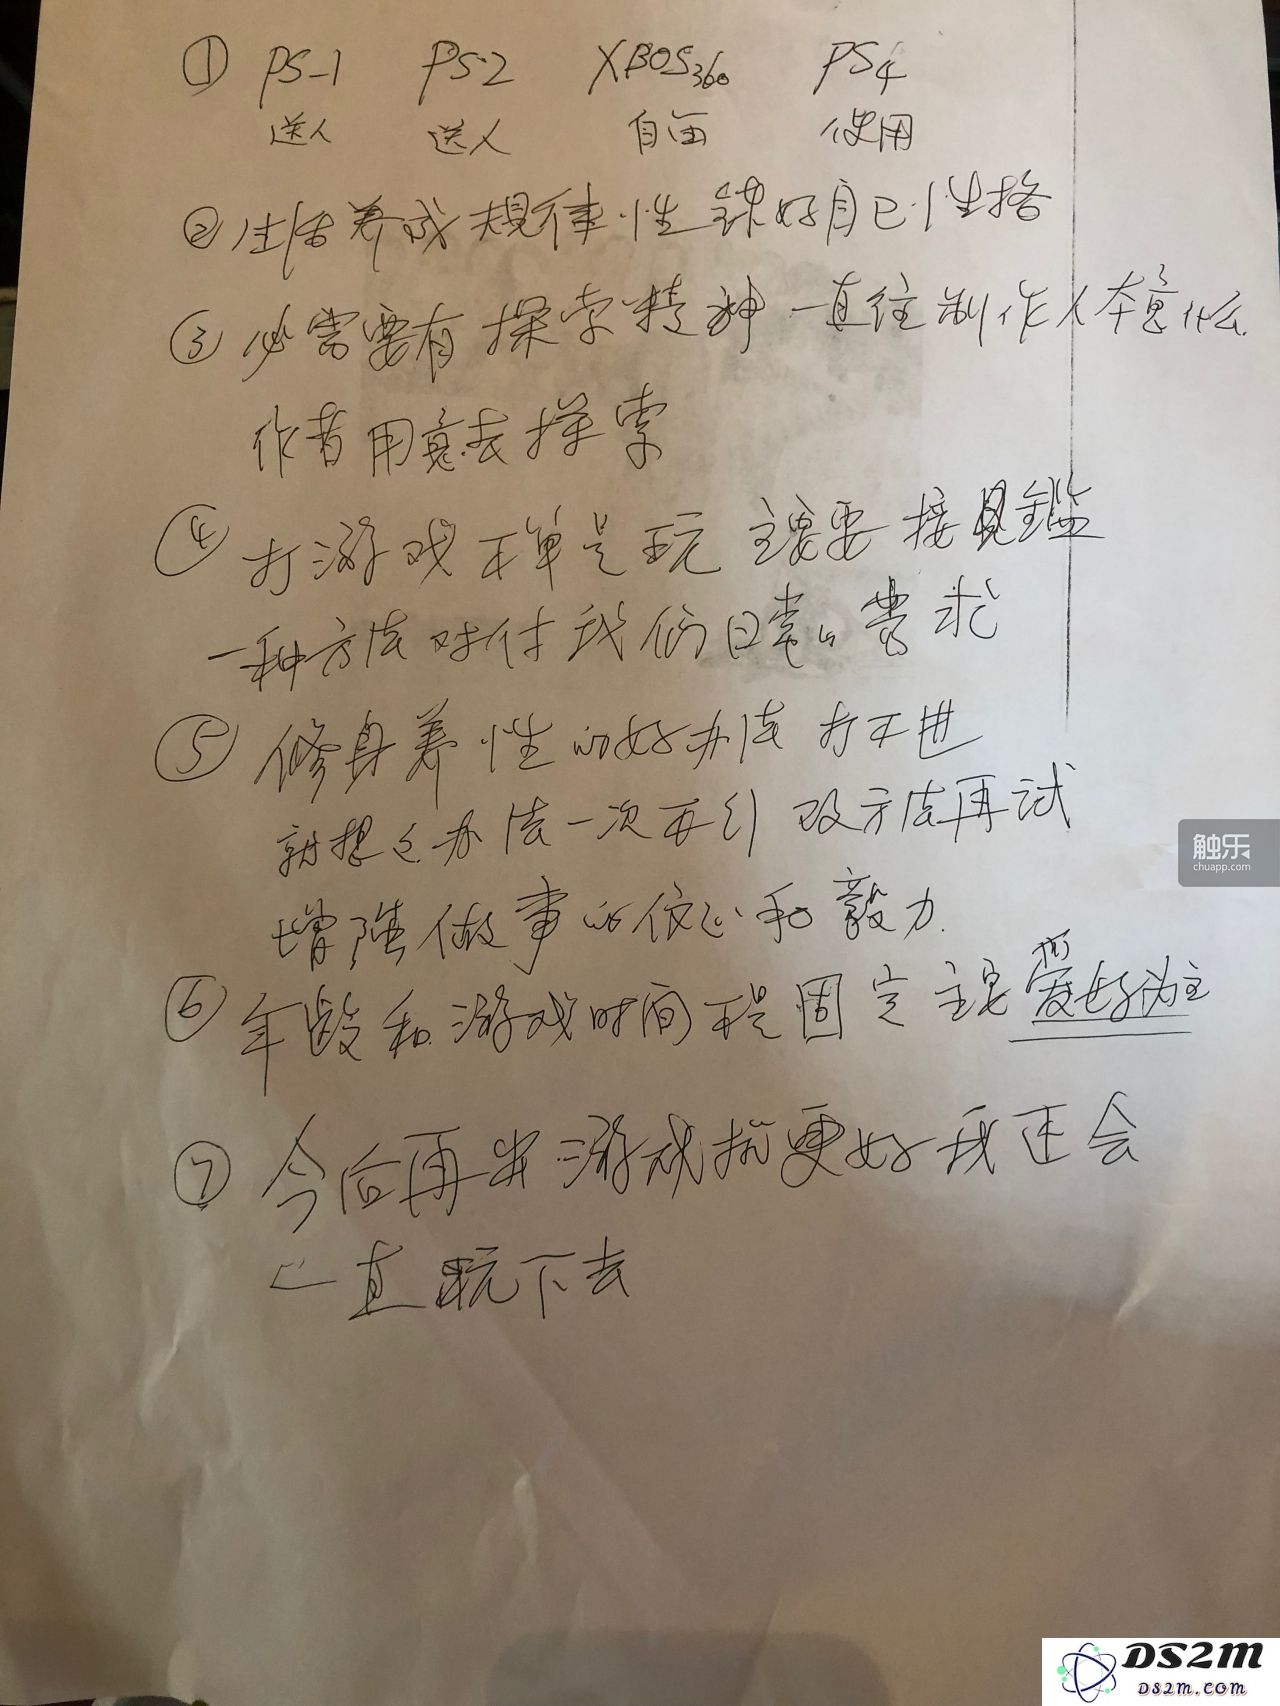 ① PS-1 PS2 XBOS360 PS4
送人 送人 自留 使用
② 生活养成规律性 锻好自己性格
③ 必需要有探索精神 一直往制作人本意什么
作者用意去探索
④ 打游戏不单是玩 主要要接见鑑
一种方法对付我们日常的需求
⑤ 修身养性的好办法 打不进
就想办法一次不行 改方法再试
增强做事的信心和毅力
⑥ 年龄和游戏时间不是固定 主要爱好为主
⑦ 今后再出游戏机更好我还会
一直玩下去
触乐
chuapp.com
DS2M
DS2M.COM